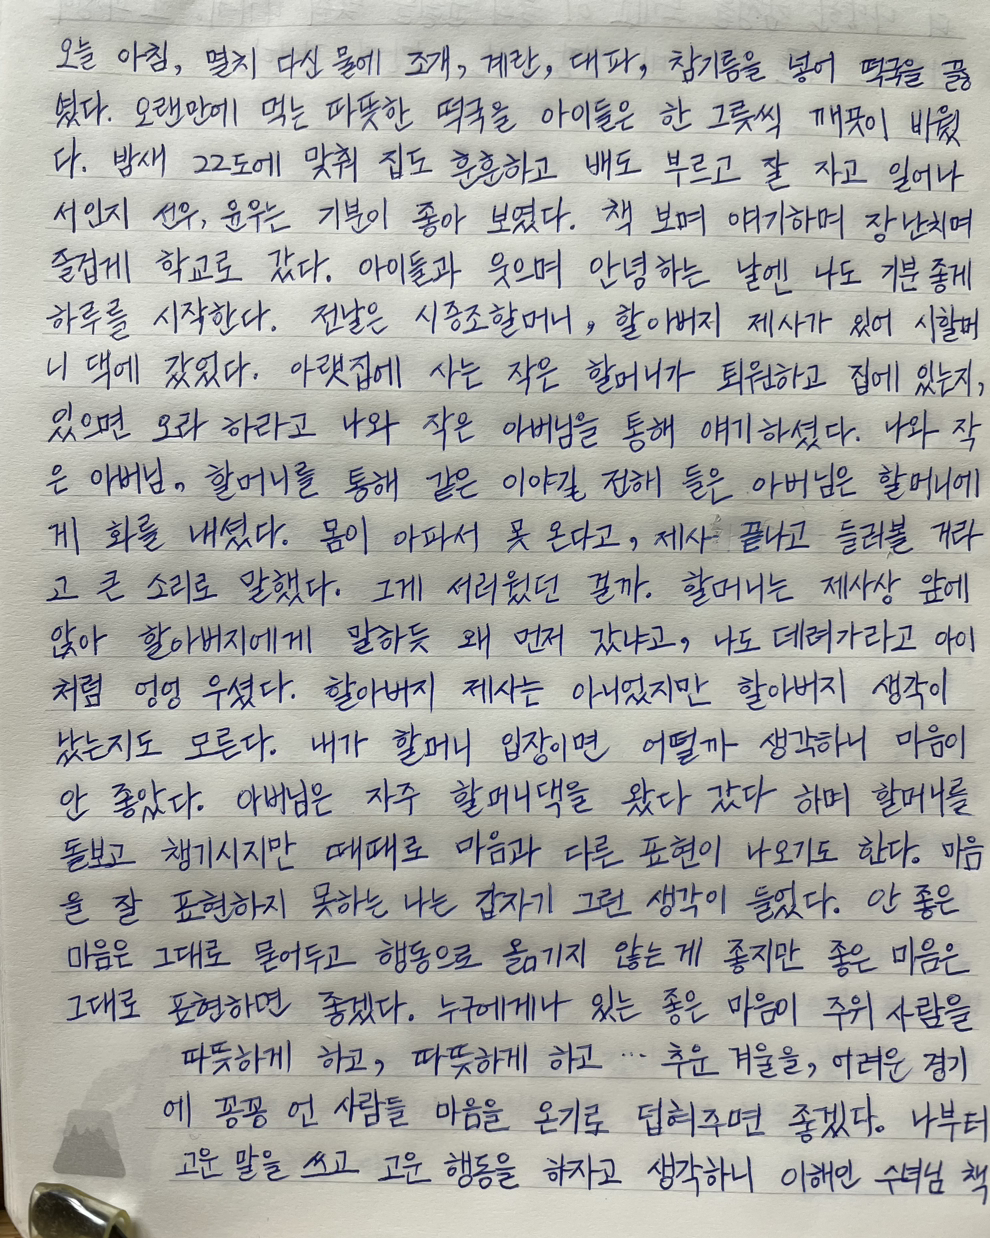 오늘 아침, 멸치 다신 물에 조개, 계란, 대파, 참기름을 넣어 떡국을 끓
였다. 오랜만에 먹는 따뜻한 떡국을 아이들은 한 그릇씩 깨끗이 비웠
다. 밤새 22도에 맞춰 집도 훈훈하고 배도 부르고 잘 자고 일어나
서인지 선우, 윤우는 기분이 좋아 보였다. 책 보며 얘기하며 장난치며
즐겁게 학교로 갔다. 아이들과 웃으며 안녕하는 날엔 나도 기분 좋게
하루를 시작한다. 전날은 시증조할머니, 할아버지 제사가 있어 시할머
니 댁에 갔었다. 아랫집에 사는 작은 할머니가 퇴원하고 집에 있는지,
있으면 오라 하라고 나와 작은 아버님을 통해 얘기하셨다. 나와 작
은 아버님, 할머니를 통해 같은 이야길 전해 들은 아버님은 할머니에
게 화를 내셨다. 몸이 아파서 못 온다고, 제사 끝나고 들러볼 거라
고 큰 소리로 말했다. 그게 서러웠던 걸까. 할머니는 제사상 앞에
앉아 할아버지에게 말하듯 왜 먼저 갔냐고, 나도 데려가라고 아이
처럼 엉엉 우셨다. 할아버지 제사는 아니었지만 할아버지 생각이
났는지도 모른다. 내가 할머니 입장이면 어떨까 생각하니 마음이
안 좋았다. 아버님은 자주 할머니댁을 왔다 갔다 하며 할머니를
돌보고 챙기시지만 때때로 마음과 다른 표현이 나오기도 한다. 마음
을 잘 표현하지 못하는 나는 갑자기 그런 생각이 들었다. 안 좋은
마음은 그대로 묻어두고 행동으로 옮기지 않는 게 좋지만 좋은 마음은
그대로 표현하면 좋겠다. 누구에게나 있는 좋은 마음이 주위 사람을
따뜻하게 하고, 따뜻하게 하고 … 추운 겨울을, 어려운 경기
에 꽁꽁 언 사람들 마음을 온기로 덥혀주면 좋겠다. 나부터
고운 말을 쓰고 고운 행동을 하자고 생각하니 이해인 수녀님 책